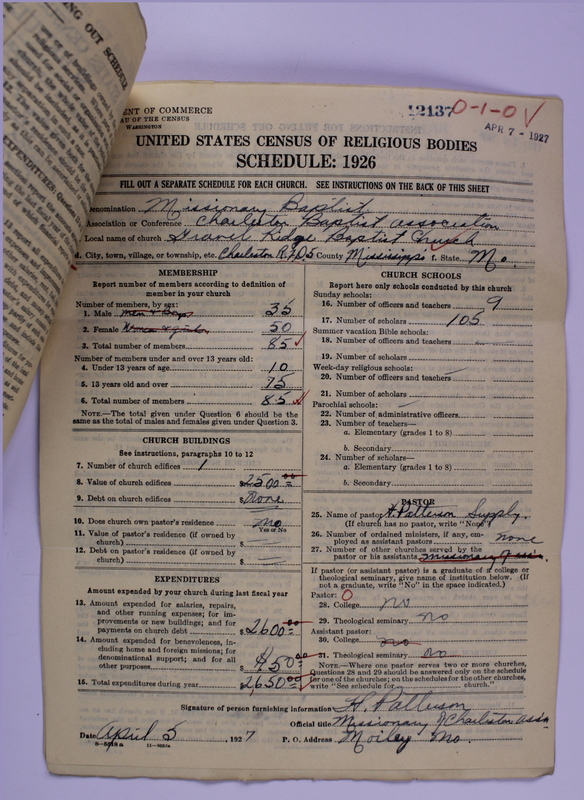 NG OUT SCHEDULE
EXPENDITURES: Ques
ENT OF COMMERCE
AU OF THE CENSUS
WASHINGTON
12137 0-1-0 V
APR 7 - 1927
UNITED STATES CENSUS OF RELIGIOUS BODIES
SCHEDULE: 1926
FILL OUT A SEPARATE SCHEDULE FOR EACH CHURCH. SEE INSTRUCTIONS ON THE BACK OF THIS SHEET
Denomination Missionary Baptist
Association or Conference Charleston Baptist association
Local name of church Gravel Ridge Baptist Church
d. City, town, village, or township, etc. Charleston R.F.D.5 County Mississippi f. State Mo.
MEMBERSHIP
Report number of members according to definition of
member in your church
Number of members, by sex:
1. Male men & Boys 35
2. Female Women & girls 50
3. Total number of members 85
Number of members under and over 13 years old:
4. Under 13 years of age 10
5. 13 years old and over 75
6. Total number of members 85
NOTE.—The total given under Question 6 should be the
same as the total of males and females given under Question 3.
CHURCH BUILDINGS
See instructions, paragraphs 10 to 12
7. Number of church edifices 1
8. Value of church edifices $2500.00
9. Debt on church edifices $none
10. Does church own pastor's residence no
Yes or No
11. Value of pastor's residence (if owned by
church) $
12. Debt on pastor's residence (if owned by
church) $
EXPENDITURES
Amount expended by your church during last fiscal year
13. Amount expended for salaries, repairs,
and other running expenses; for im-
provements or new buildings; and for
payments on church debt $2600.00
14. Amount expended for benevolences, in-
cluding home and foreign missions; for
denominational support; and for all
other purposes $50.00
15. Total expenditures during year $2650.00
CHURCH SCHOOLS
Report here only schools conducted by this church
Sunday schools:
16. Number of officers and teachers 9
17. Number of scholars 105
Summer vacation Bible schools:
18. Number of officers and teachers
19. Number of scholars
Week-day religious schools:
20. Number of officers and teachers
21. Number of scholars
Parochial schools:
22. Number of administrative officers
23. Number of teachers—
a. Elementary (grades 1 to 8)
b. Secondary
24. Number of scholars—
a. Elementary (grades 1 to 8)
b. Secondary
PASTOR
25. Name of pastor H. Patterson Supply.
(If church has no pastor, write "None")
26. Number of ordained ministers, if any, em-
ployed as assistant pastors none
27. Number of other churches served by the
pastor or his assistants missionary of
If pastor (or assistant pastor) is a graduate of a college or
theological seminary, give name of institution below. (If
not a graduate, write "No" in the space indicated.)
Pastor: 0
28. College no
29. Theological seminary no
Assistant pastor:
30. College no
31. Theological seminary no
NOTE.—Where one pastor serves two or more churches,
Questions 28 and 29 should be answered only on the schedule
for one of the churches; on the schedules for the other churches,
write "See schedule for church."
Signature of person furnishing information H. Patterson
Official title Missionary of Charleston Assn
Date April 5, 1927 P. O. Address Morley Mo.